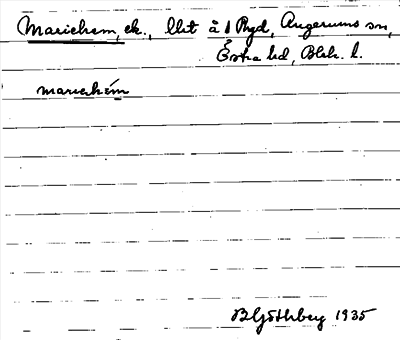 Mariehem, ek., lht å 1 Ryd, Augerums sn,
Östra hd, Blek. l.
mariehém
B Göthberg 1935